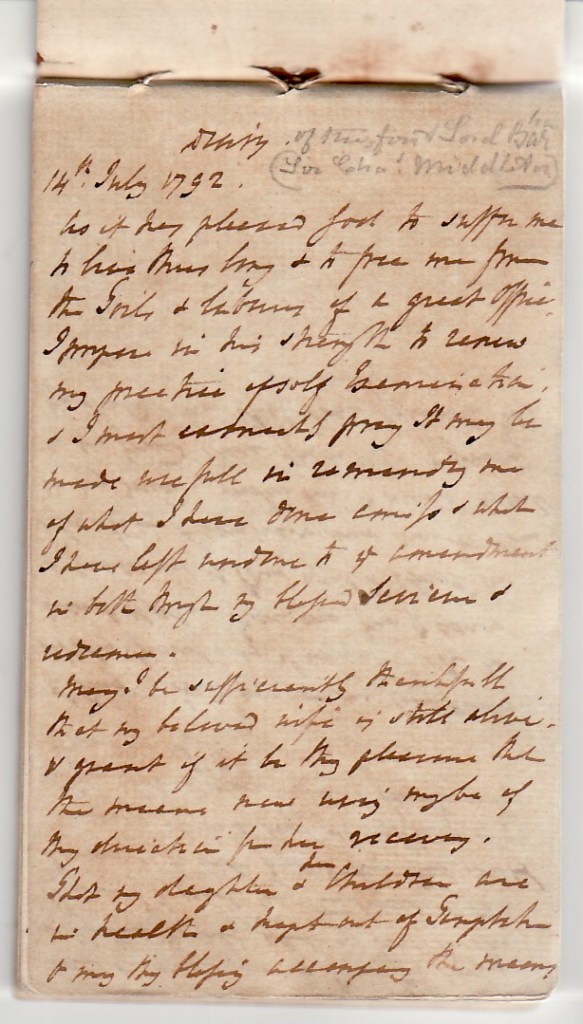 Diary. of the first Lord Bar
14th July 1792. (Sir Chas Middleton)
As it has pleased God to suffer me
to live thus long & to free me from
the Toils & labours of a great Office.
I propose in his strength to renew
my practice of self Examination,
& I most earnestly pray It may be
made usefull in reminding me
of what I have done amiss & what
I have left undone to ye amendment
in both through my blessed Saviour &
redeemer.
May I be sufficiently thankfull
that my beloved wife is still alive.
& grant if it be thy pleasure that
the means now using maybe of
thy direction for her recovery.
That my daughter & her Children are
in health & kept out of Temptatn
& may thy blessing accompany the means